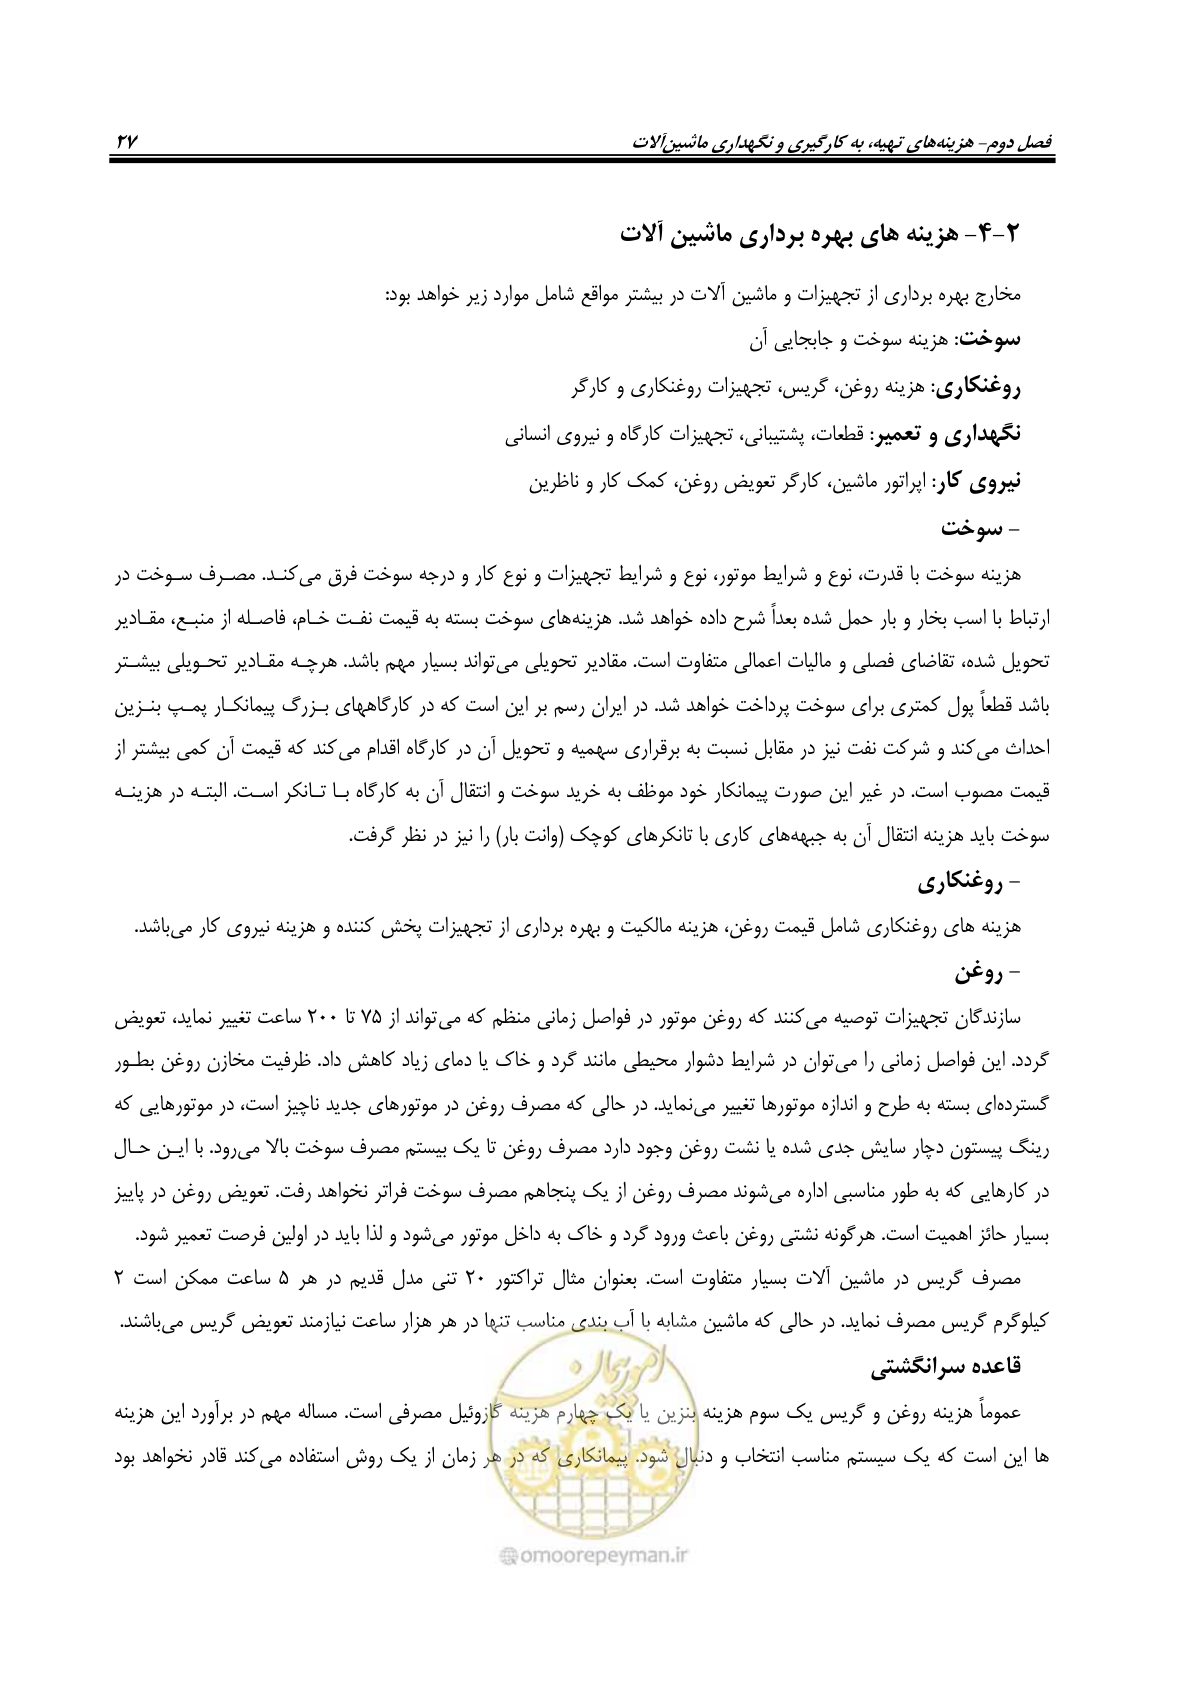 فصل دوم- هزینه‌های تهیه، به کارگیری و نگهداری ماشین‌آلات ۲۷
۲-۴- هزینه های بهره برداری ماشین آلات
مخارج بهره برداری از تجهیزات و ماشین آلات در بیشتر مواقع شامل موارد زیر خواهد بود:
سوخت: هزینه سوخت و جابجایی آن
روغنکاری: هزینه روغن، گریس، تجهیزات روغنکاری و کارگر
نگهداری و تعمیر: قطعات، پشتیبانی، تجهیزات کارگاه و نیروی انسانی
نیروی کار: اپراتور ماشین، کارگر تعویض روغن، کمک کار و ناظرین
- سوخت
هزینه سوخت با قدرت، نوع و شرایط موتور، نوع و شرایط تجهیزات و نوع کار و درجه سوخت فرق می‌کند. مصرف سوخت در
ارتباط با اسب بخار و بار حمل شده بعداً شرح داده خواهد شد. هزینه‌های سوخت بسته به قیمت نفت خام، فاصله از منبع، مقادیر
تحویل شده، تقاضای فصلی و مالیات اعمالی متفاوت است. مقادیر تحویلی می‌تواند بسیار مهم باشد. هرچه مقادیر تحویلی بیشتر
باشد قطعاً پول کمتری برای سوخت پرداخت خواهد شد. در ایران رسم بر این است که در کارگاههای بزرگ پیمانکار پمپ بنزین
احداث می‌کند و شرکت نفت نیز در مقابل نسبت به برقراری سهمیه و تحویل آن در کارگاه اقدام می‌کند که قیمت آن کمی بیشتر از
قیمت مصوب است. در غیر این صورت پیمانکار خود موظف به خرید سوخت و انتقال آن به کارگاه با تانکر است. البته در هزینه
سوخت باید هزینه انتقال آن به جبهه‌های کاری با تانکرهای کوچک (وانت بار) را نیز در نظر گرفت.
- روغنکاری
هزینه های روغنکاری شامل قیمت روغن، هزینه مالکیت و بهره برداری از تجهیزات پخش کننده و هزینه نیروی کار می‌باشد.
- روغن
سازندگان تجهیزات توصیه می‌کنند که روغن موتور در فواصل زمانی منظم که می‌تواند از ۷۵ تا ۲۰۰ ساعت تغییر نماید، تعویض
گردد. این فواصل زمانی را می‌توان در شرایط دشوار محیطی مانند گرد و خاک یا دمای زیاد کاهش داد. ظرفیت مخازن روغن بطور
گسترده‌ای بسته به طرح و اندازه موتورها تغییر می‌نماید. در حالی که مصرف روغن در موتورهای جدید ناچیز است، در موتورهایی که
رینگ پیستون دچار سایش جدی شده یا نشت روغن وجود دارد مصرف روغن تا یک بیستم مصرف سوخت بالا می‌رود. با این حال
در کارهایی که به طور مناسبی اداره می‌شوند مصرف روغن از یک پنجاهم مصرف سوخت فراتر نخواهد رفت. تعویض روغن در پاییز
بسیار حائز اهمیت است. هرگونه نشتی روغن باعث ورود گرد و خاک به داخل موتور می‌شود و لذا باید در اولین فرصت تعمیر شود.
مصرف گریس در ماشین آلات بسیار متفاوت است. بعنوان مثال تراکتور ۲۰ تنی مدل قدیم در هر ۵ ساعت ممکن است ۲
کیلوگرم گریس مصرف نماید. در حالی که ماشین مشابه با آب بندی مناسب تنها در هر هزار ساعت نیازمند تعویض گریس می‌باشند.
قاعده سرانگشتی
عموماً هزینه روغن و گریس یک سوم هزینه بنزین یا یک چهارم هزینه گازوئیل مصرفی است. مساله مهم در برآورد این هزینه
ها این است که یک سیستم مناسب انتخاب و دنبال شود. پیمانکاری که در هر زمان از یک روش استفاده می‌کند قادر نخواهد بود
امور پیمان
@omoorepeyman.ir